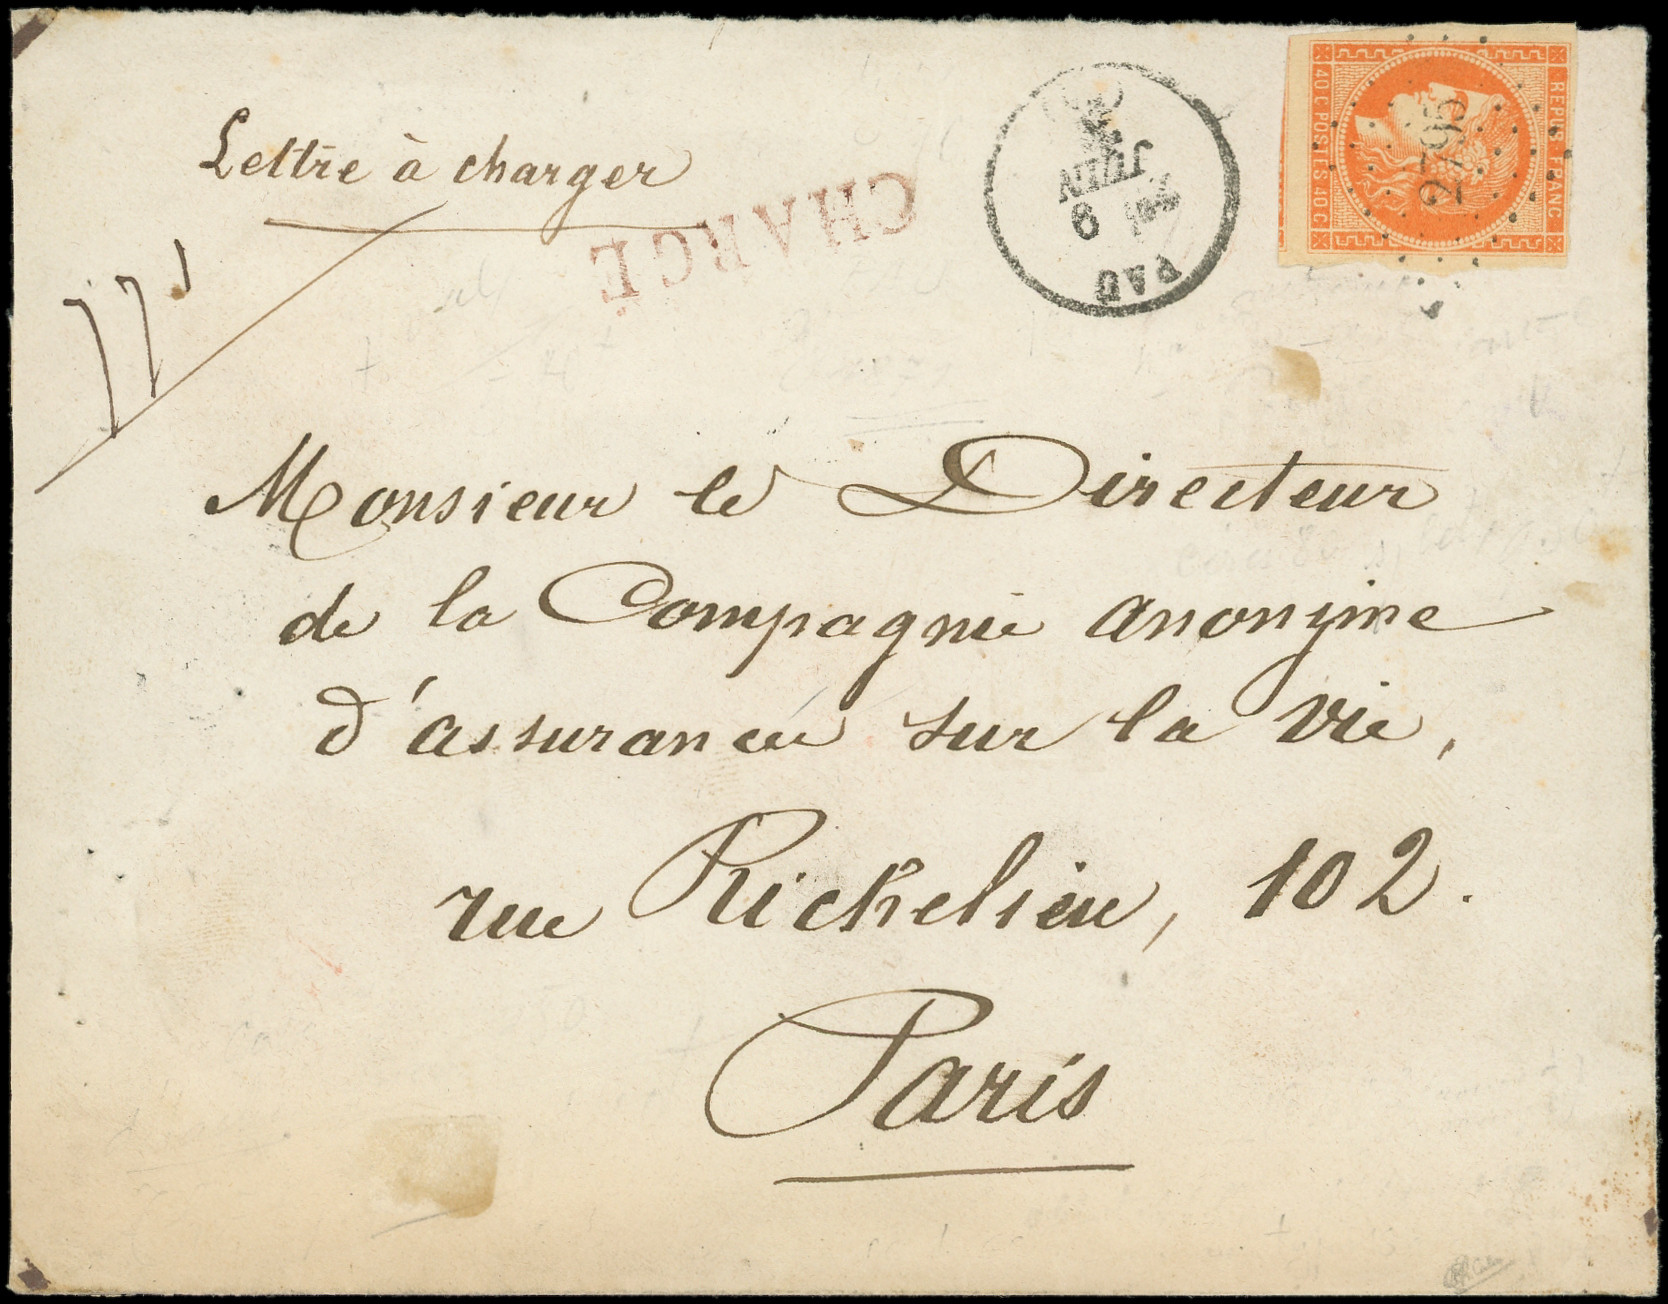 Lettre à charger
CHARGÉ
PAU
8
JUIN
REPUB FRANC
40 C POSTES 40 C
2795
Monsieur le Directeur
de la Compagnie anonyme
d'assurance sur la vie,
rue Richelieu, 102.
Paris